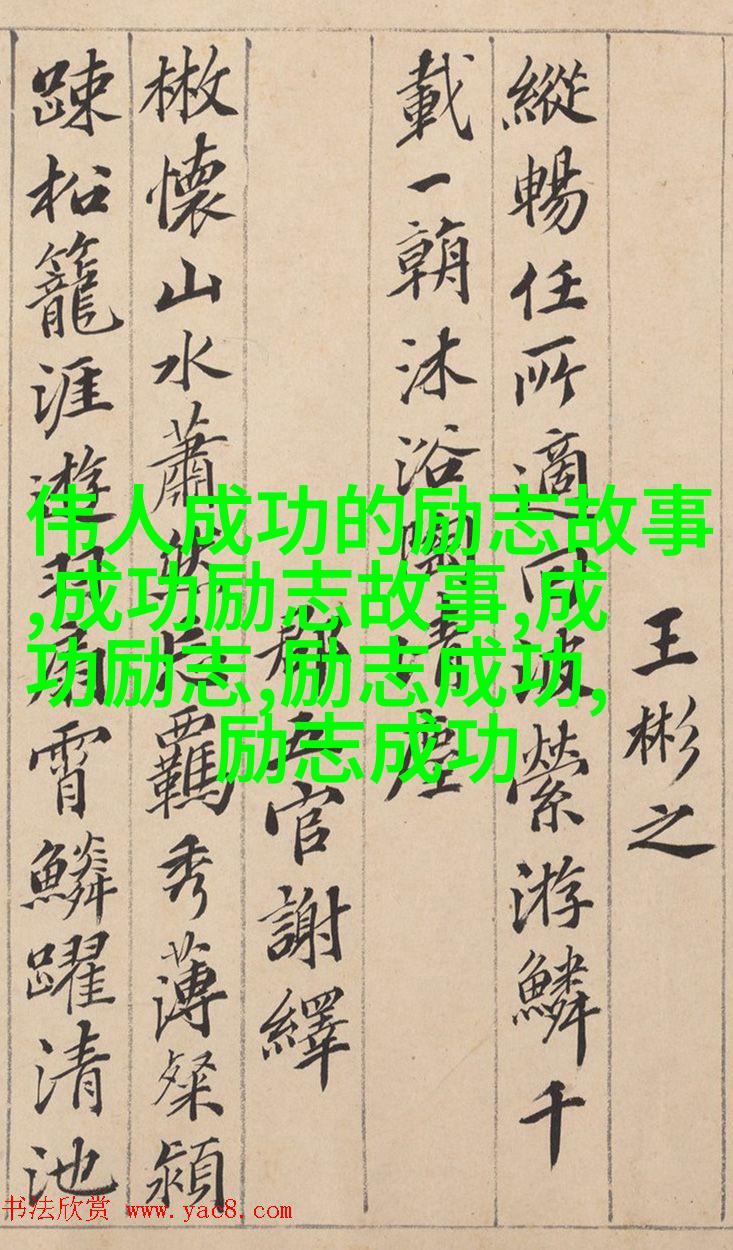 王彬之
縱暢任所適回波縈游鱗千
載一朝沐浴陶清塵
郡五官謝繹
散懷山水蕭然忘羈秀薄粲穎
踈松籠涯遊羽扇霄鱗躍清池
伟人成功的励志故事
,成功励志故事,成
功励志,励志成功,
励志成功
书法欣赏 www.yac8.com